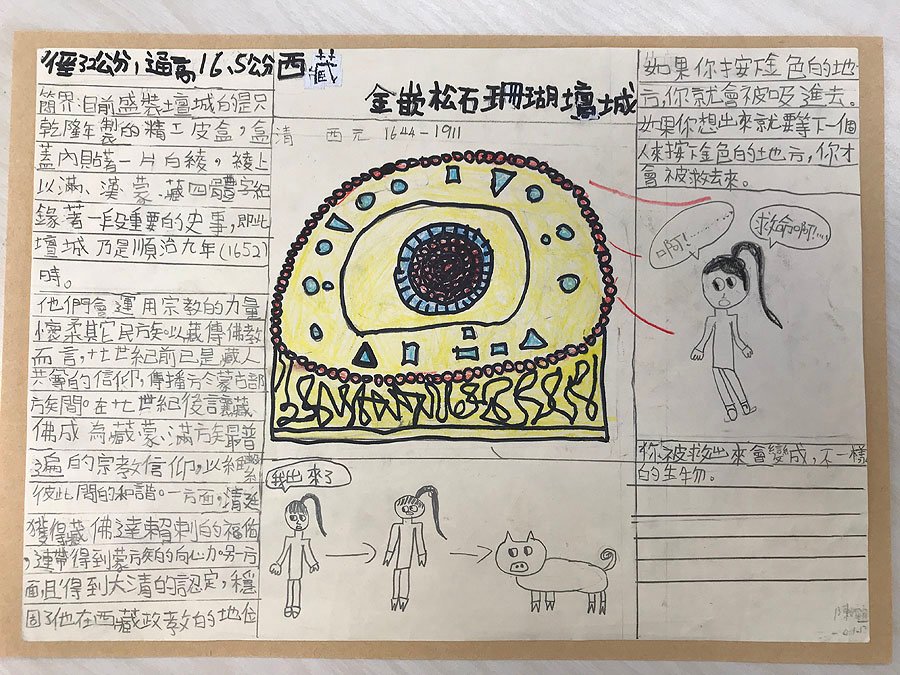 徑32公分，通高16.5公分西藏
金嵌松石珊瑚壇城
清 西元 1644-1911
簡界:目前盛裝壇城的是只
乾隆年製的精工皮盒，盒
蓋內貼著一片白綾，綾上
以滿、漢、蒙、藏四體字紀
錄著一段重要的史事，即此
壇城 乃是順治九年(1652)
時。
他們會運用宗教的力量
懷柔其它民族。以藏傳佛教
而言，十七世紀前已是藏人
共奉的信仰，傳播於蒙古部
族間。在十七世紀後言藏
佛成為藏、蒙、滿族最普
遍的宗教信仰，以維繫
彼此間的和諧。一方面，清廷
獲得藏佛達賴喇的福佑
，連帶得到蒙族的向心力。另一方
面，且得到大清的認定，穩
固了他在西藏政教的地位
如果你按下金色的地
方，你就會被吸進去。
如果你想出來就要等下一個
人來按下金色的地方，你才
會被救去來。
啊!………
救命啊!…
你被救出來會變成，不一樣
的生物。
我出來了